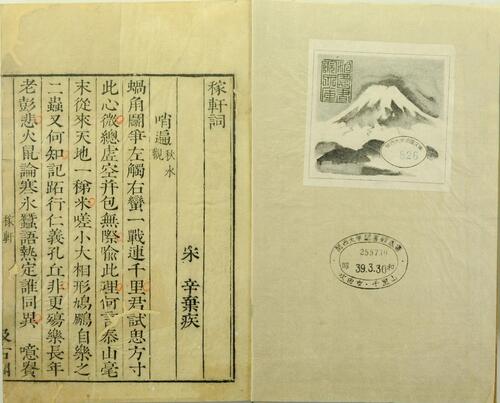 稼軒詞
宋 辛棄疾
哨遍 秋水觀
蝸角鬭爭左觸右蠻一戰連千里君試思方寸
此心微總虛空并包無際喻此理何言泰山毫
末從來天地一稊米嗟小大相形鳩鵬自樂之
二蟲又何知記跖行仁義孔丘非更殤樂長年
老彭悲火鼠論寒氷蠶語熱定誰同異 噫貴
稼軒
826
昭和
39.3.30